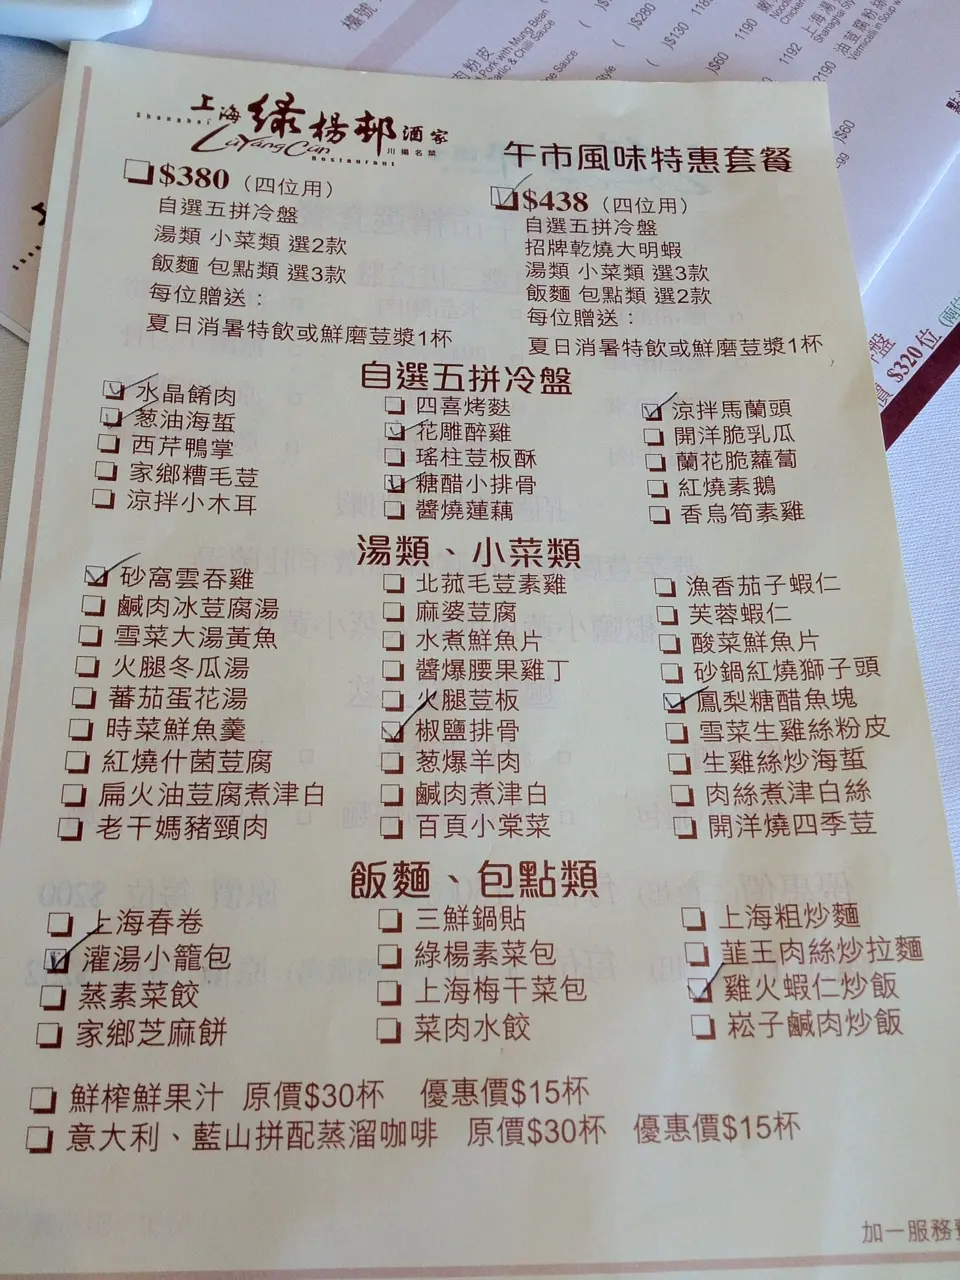 上海 綠楊邨 酒家
Shanghai LuYangCun Restaurant
川揚名菜
午市風味特惠套餐
$380（四位用）
自選五拼冷盤
湯類 小菜類 選2款
飯麵 包點類 選3款
每位贈送：
夏日消暑特飲或鮮磨荳漿1杯
$438（四位用）
自選五拼冷盤
招牌乾燒大明蝦
湯類 小菜類 選3款
飯麵 包點類 選2款
每位贈送：
夏日消暑特飲或鮮磨荳漿1杯
自選五拼冷盤
水晶餚肉
葱油海蜇
西芹鴨掌
家鄉糟毛荳
涼拌小木耳
四喜烤麩
花雕醉雞
瑤柱荳板酥
糖醋小排骨
醬燒蓮藕
涼拌馬蘭頭
開洋脆乳瓜
蘭花脆蘿蔔
紅燒素鵝
香烏筍素雞
湯類、小菜類
砂窩雲吞雞
鹹肉冰荳腐湯
雪菜大湯黃魚
火腿冬瓜湯
蕃茄蛋花湯
時菜鮮魚羹
紅燒什菌荳腐
扁火油荳腐煮津白
老干媽豬頸肉
北菰毛荳素雞
麻婆荳腐
水煮鮮魚片
醬爆腰果雞丁
火腿荳板
椒鹽排骨
葱爆羊肉
鹹肉煮津白
百頁小棠菜
漁香茄子蝦仁
芙蓉蝦仁
酸菜鮮魚片
砂鍋紅燒獅子頭
鳳梨糖醋魚塊
雪菜生雞絲粉皮
生雞絲炒海蜇
肉絲煮津白絲
開洋燒四季荳
飯麵、包點類
上海春卷
灌湯小籠包
蒸素菜餃
家鄉芝麻餅
三鮮鍋貼
綠楊素菜包
上海梅干菜包
菜肉水餃
上海粗炒麵
韮王肉絲炒拉麵
雞火蝦仁炒飯
崧子鹹肉炒飯
鮮榨鮮果汁 原價$30杯 優惠價$15杯
意大利、藍山拼配蒸溜咖啡 原價$30杯 優惠價$15杯
加一服務
$320位
)$280
)$130
)$60
1190
1192
2190
)$60
肉粉皮
Pork with Mung Bean
Garlic & Chili Sauce
Vermicelli in Soup